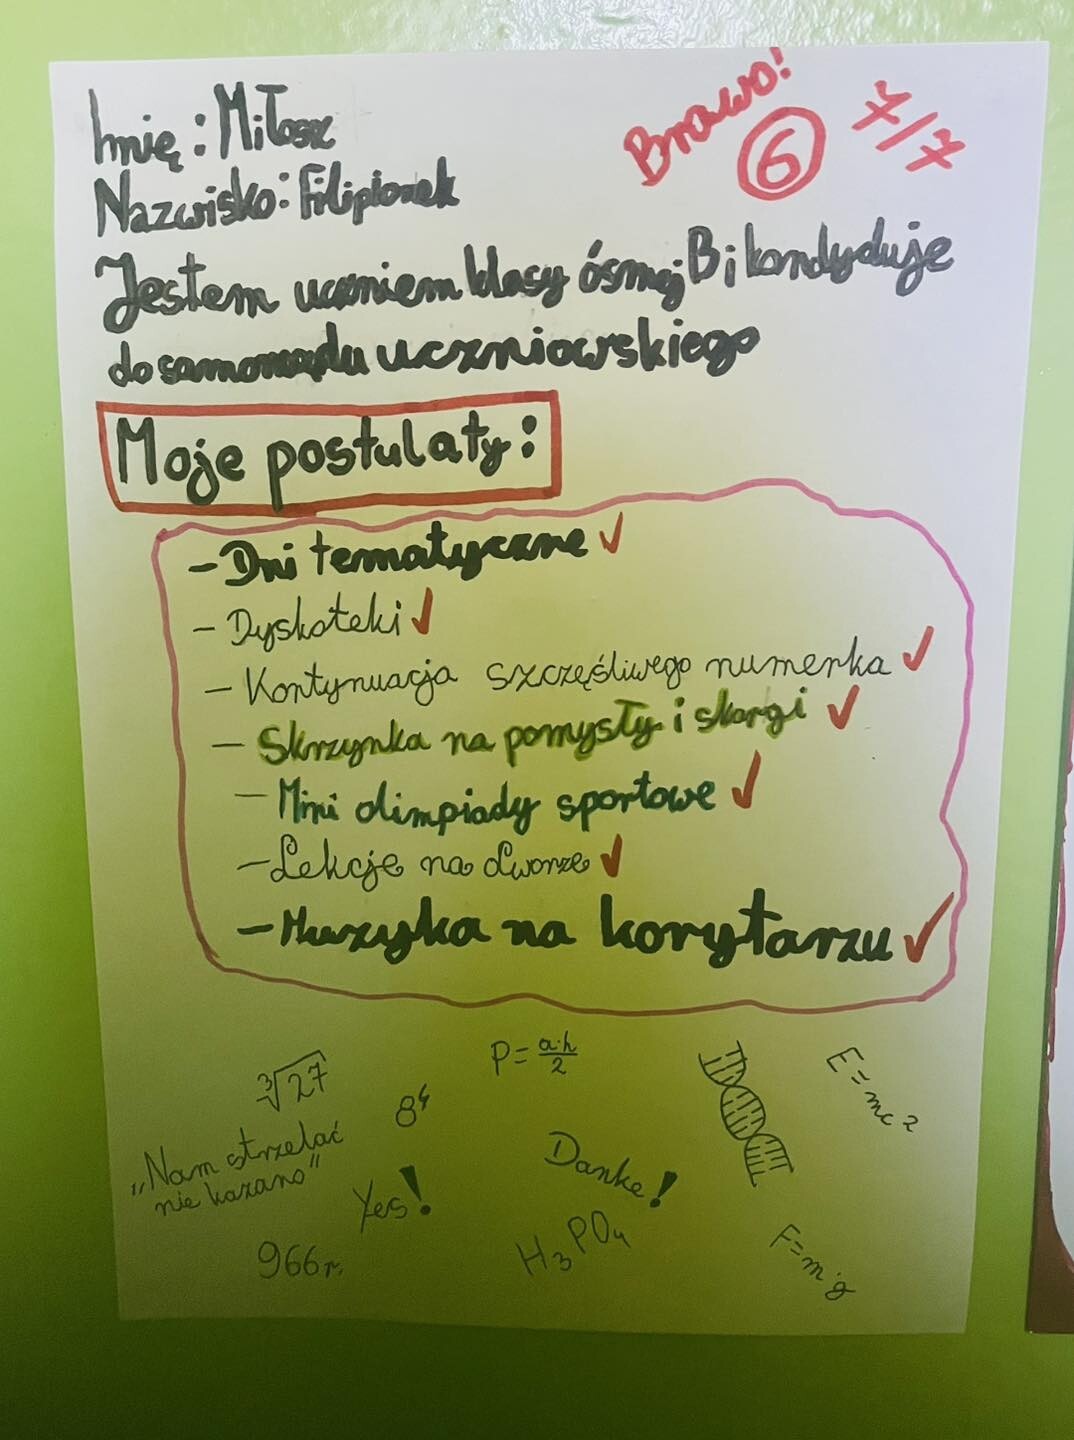 Imię: Miłosz
Brawo!
6
7/7
Nazwisko: Filipionek
Jestem uczniem klasy ósmej B i kandyduję
do samorządu uczniowskiego
Moje postulaty:
- Dni tematyczne ✓
- Dyskoteki ✓
- Kontynuacja szczęśliwego numerka ✓
- Skrzynka na pomysły i skargi ✓
- Mini olimpiady sportowe ✓
- Lekcje na dworze ✓
- Muzyka na korytarzu ✓
P = a·h/2
∛27
8⁴
E = mc²
„Nam strzelać
nie kazano"
Yes!
Danke!
966r.
H₃PO₄
F = m·g